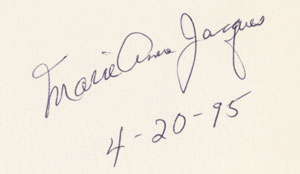 Marie Ann Jacques
4-20-95